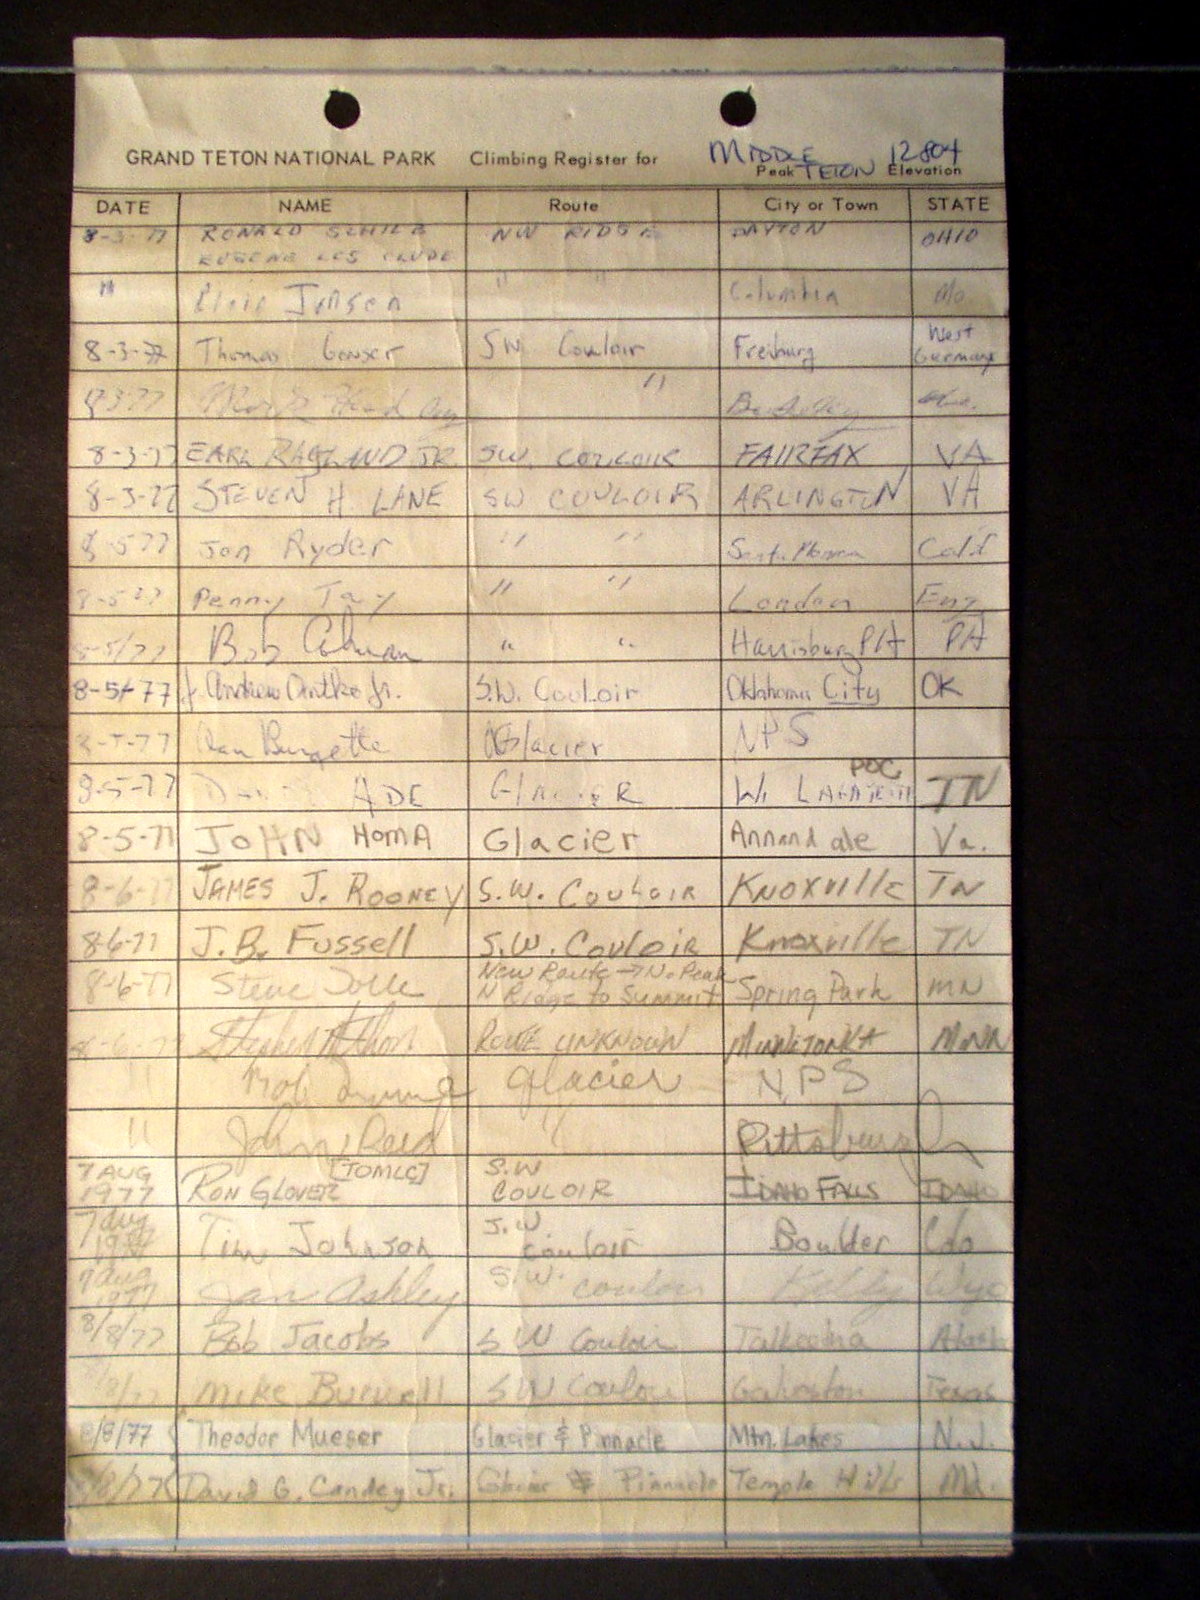 GRAND TETON NATIONAL PARK Climbing Register for MIDDLE TETON 12804
Peak Elevation
DATE NAME Route City or Town STATE
8-3-77 RONALD NW RIDGE DAYTON OHIO
EUGENE
" Jensen " " Columbia Mo
8-3-77 Thomas Gonser SW Couloir Freiburg West Germany
8-3-77 " Berkeley
8-3-77 EARL RAGLAND JR. SW. COULOIR FAIRFAX VA
8-3-77 STEVEN H. LANE SW COULOIR ARLINGTON VA
8-5-77 Jon Ryder " " Santa Monica Calif
8-5-77 Penny Tay " " London Eng.
8-5/77 Bob " " Harrisburg PA PA
8-5/77 J. Andrew Jr. S.W. Couloir Oklahoma City OK
8-5-77 Dan Burgette Glacier NPS
8-5-77 ADE GLACIER W. LAFAYETTE POC TN
8-5-77 JOHN HOMA Glacier Annandale Va.
8-6-77 JAMES J. ROONEY S.W. COULOIR KNOXVILLE TN
8-6-77 J.B. Fussell S.W. COULOIR Knoxville TN
8-6-77 Steve New Route → No. Peak
N Ridge to Summit Spring Park MN
8-6-77 Stephen ROUTE UNKNOWN MINNETONKA MINN
" Bob Glacier NPS
" John Reed " Pittsburgh
7 AUG 1977 RON GLOVER [JOMLC] S.W COULOIR IDAHO FALLS IDAHO
7 Aug 1977 Tim Johnson S.W couloir Boulder Colo
7 Aug 1977 Jan Ashley S.W. couloir Kelly Wyo
8/8/77 Bob Jacobs SW Couloir Talkeetna Alaska
8/8/77 Mike Burwell SW Couloir Galveston Texas
8/8/77 Theodor Mueser Glacier & Pinnacle Mtn. Lakes N.J.
8/8/77 David G. Candey Jr. Glacier & Pinnacle Temple Hills Md.